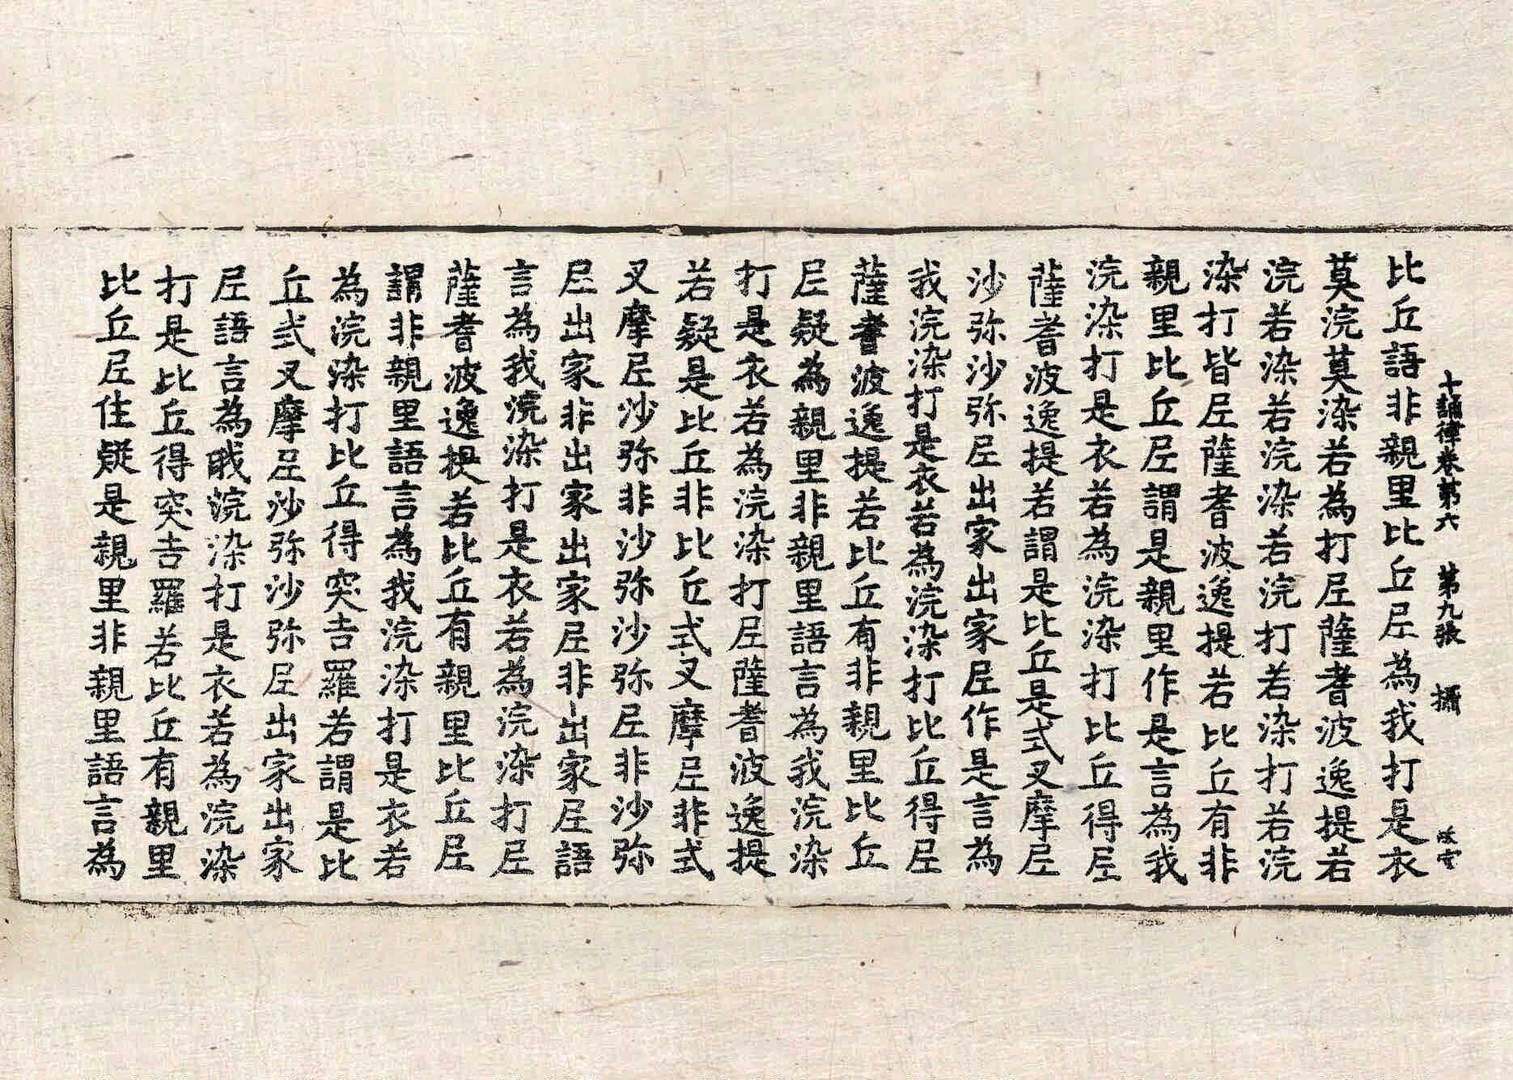 十誦律卷第六　第九張　攝
比丘語非親里比丘尼為我打是衣
莫浣莫染若為打尼薩耆波逸提若
浣若染若浣染若浣打若染打若浣
染打皆尼薩耆波逸提若比丘有非
親里比丘尼謂是親里作是言為我
浣染打是衣若為浣染打比丘得尼
薩耆波逸提若謂是比丘是式叉摩尼
沙弥沙弥尼出家出家尼作是言為
我浣染打是衣若為浣染打比丘得尼
薩耆波逸提若比丘有非親里比丘
尼疑為親里非親里語言為我浣染
打是衣若為浣染打尼薩耆波逸提
若疑是比丘非比丘式叉摩尼非式
叉摩尼沙弥非沙弥沙弥尼非沙弥
尼出家非出家出家尼非出家尼語
言為我浣染打是衣若為浣染打尼
薩耆波逸提若比丘有親里比丘尼
謂非親里語言為我浣染打是衣若
為浣染打比丘得突吉羅若謂是比
丘式叉摩尼沙弥沙弥尼出家出家
尼語言為我浣染打是衣若為浣染
打是比丘得突吉羅若比丘有親里
比丘尼住疑是親里非親里語言為